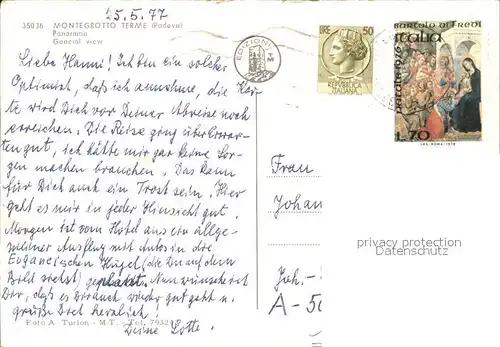 25.5.77
35036 MONTEGROTTO TERME (Padova)
Panorama
General view
Liebe Hanni! Ich bin ein solcher
Optimist, daß ich annehme, die Kar-
te wird Dich vor Deiner Abreise noch
erreichen. Die Reise ging über Erwar-
ten gut, ich hätte mir gar keine Sor-
gen machen brauchen. Das kann
für Dich auch ein Trost sein. Hier
geht es mir in jeder Hinsicht gut.
Morgen ist vom Hotel aus ein allge-
meiner Ausflug mit Autos in die
Euganeischen Hügel (die Du auf dem
Bild siehst) geplant. Nun wünsche ich
Dir, daß es Dir auch wieder gut geht u.
grüße Dich herzlich!
Deine Lotte.
Foto A. Turlon - M.T. - Tel.
EDIZIONI
LIRE 50
REPVBBLICA
ITALIANA
Bartolo di Fredi
italia
natale 1976
L.70
I.P.S.-ROMA-1976
Frau
Johan
Joh.-
A-50
privacy protection
watermark